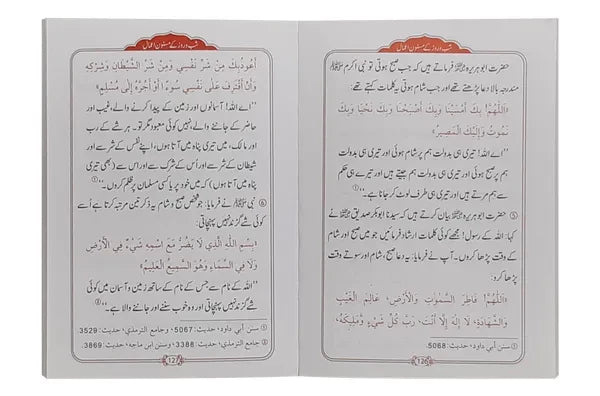 شب و روز کے مسنون اعمال
حضرت ابو ہریرہ رضی اللہ عنہ فرماتے ہیں کہ جب صبح ہوتی تو نبی اکرم ﷺ
مندرجہ بالا دعا پڑھتے تھے اور جب شام ہوتی یہ کلمات کہتے تھے:
«اَللّٰهُمَّ! بِكَ أَمْسَيْنَا وَبِكَ أَصْبَحْنَا وَبِكَ نَحْيَا وَبِكَ
نَمُوتُ وَإِلَيْكَ الْمَصِيرُ»
’’اے اللہ! تیری ہی بدولت ہم پر شام ہوئی اور تیری ہی بدولت
ہم پر صبح ہوئی اور تیری ہی بدولت ہم جیتے ہیں اور تیرے ہی حکم
سے ہم مرتے ہیں اور تیری ہی طرف لوٹ کر جانا ہے۔‘‘①
⑤ حضرت ابو ہریرہ رضی اللہ عنہ بیان کرتے ہیں کہ سیدنا ابوبکر صدیق رضی اللہ عنہ نے
کہا: اللہ کے رسول! مجھے کوئی کلمات ارشاد فرمائیں جو میں صبح اور شام
کے وقت پڑھا کروں۔ آپ نے فرمایا: یہ دعا صبح، شام اور سوتے وقت
پڑھا کرو:
«اَللّٰهُمَّ! فَاطِرَ السَّمٰوَاتِ وَالْأَرْضِ، عَالِمَ الْغَيْبِ
وَالشَّهَادَةِ، لَا إِلٰهَ إِلَّا أَنْتَ، رَبَّ كُلِّ شَيْءٍ وَّمَلِيكَهُ،
① سنن أبي داود، حديث: 5068.
126
شب و روز کے مسنون اعمال
أَعُوذُ بِكَ مِنْ شَرِّ نَفْسِي وَمِنْ شَرِّ الشَّيْطَانِ وَشِرْكِهِ
وَأَنْ أَقْتَرِفَ عَلٰى نَفْسِي سُوءًا أَوْ أَجُرَّهُ إِلٰى مُسْلِمٍ»
’’اے اللہ! آسمانوں اور زمین کے پیدا کرنے والے، غیب اور
حاضر کے جاننے والے، نہیں کوئی معبود مگر تو۔ ہر شے کے رب
اور مالک، میں تیری پناہ میں آتا ہوں، اپنے نفس کے شر سے اور
شیطان کے شر سے اور اس کے شرک سے اور اس سے (بھی تیری
پناہ میں آتا ہوں) کہ میں خود پر یا کسی مسلمان پر ظلم کروں۔‘‘①
⑥ نبی ﷺ نے فرمایا: جو شخص صبح و شام یہ ذکر تین مرتبہ کرتا ہے اُسے
کوئی شے گزند نہیں پہنچاتی:
«بِسْمِ اللّٰهِ الَّذِي لَا يَضُرُّ مَعَ اسْمِهِ شَيْءٌ فِي الْأَرْضِ
وَلَا فِي السَّمَاءِ وَهُوَ السَّمِيعُ الْعَلِيمُ»
’’اللہ کے نام سے جس کے نام کے ساتھ زمین و آسمان میں کوئی
شے گزند نہیں پہنچاتی اور وہ خوب سننے اور جاننے والا ہے۔‘‘②
① سنن أبي داود، حديث: 5067، وجامع الترمذي، حديث: 3529.
② جامع الترمذي، حديث: 3388، وسنن ابن ماجه، حديث: 3869.
127